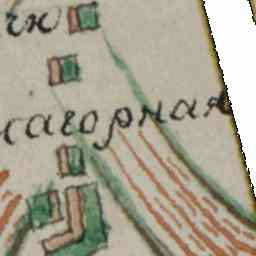 чк
сагорная